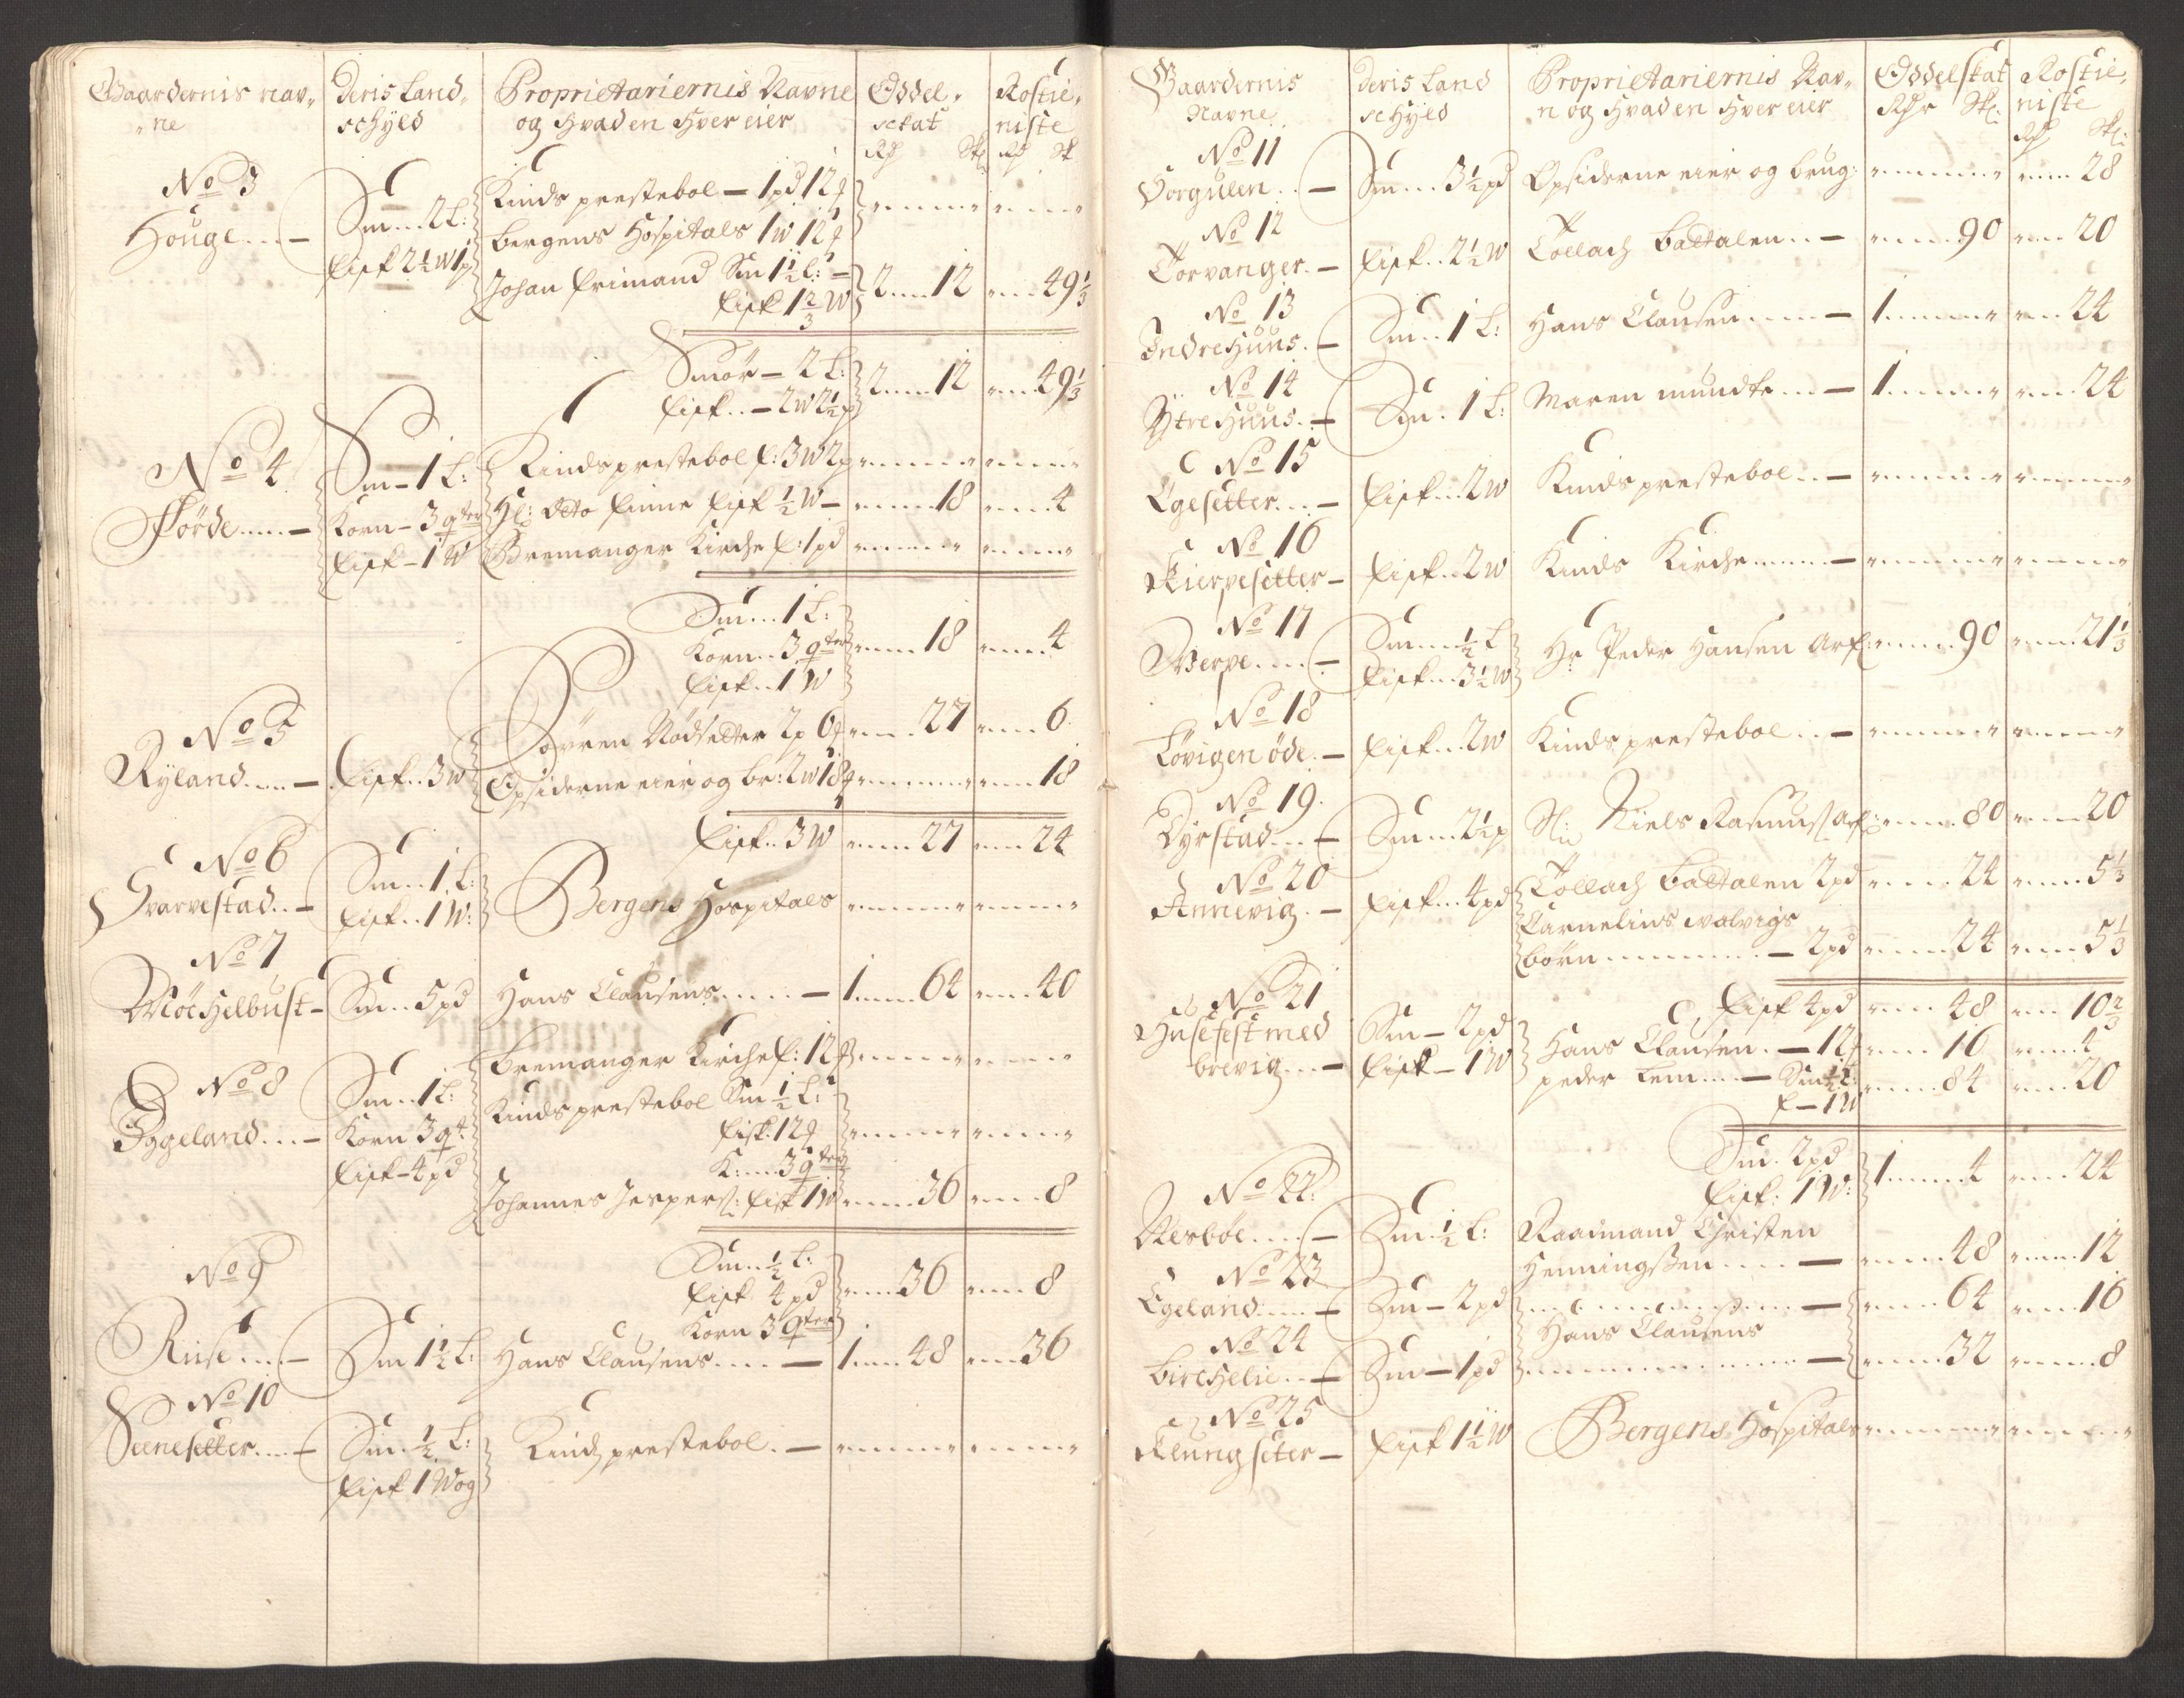 Gaardernis nav„
„ne
Deris Land„
schyld
Proprietariernis Navne
og hvad en hver eier
Oddel„
sckat
Rdr Sk
Rostie„
niste
Rd Sk
No 3
Houge
Sm 2 L:
Fisk 2½ W 1 p
Kinds prestebol — 1 pd 12
Bergens Hospitals 1 W 12
Johan Frimand Sm 1½ L:
Fisk 1⅔ W
2 12 49⅓
Smør — 2 L:
Fisk — 2 W 2½ p
2 12 49⅓
No 4
Førde
Sm — 1 L:
Korn — 3 qter
Fisk — 1 W
Kinds prestebol f: 3 W 2 p
Hr: Otto Finne Fisk ½ W — 18 4
Bremanger Kirche f: 1 pd
Sm 1 L:
Korn 3 qter
Fisk 1 W
18 4
No 5
Ryland
Fisk 3 W
Søvren Nødsetter 2 p 6 27 6
Opsiderne eier og br: 2 W 18 18
Fisk 3 W 27 24
No 6
Svarvestad
Sm 1 L:
Fisk 1 W:
Bergens Hospitals
No 7
Møchelbust
Sm 5 pd Hans Clausens — 1 64 40
No 8
Iggeland
Sm 1 L:
Korn 3 qt
Fisk — 4 pd
Bremanger Kirche f: 12
Kinds prestebol Sm ½ L:
Fisk: 12
K: 3 qter
Johannes Jespers: Fisk 1 W 36 8
Sm ½ L:
Fisk 4 pd
Korn 3 qter
36 8
No 9
Rise
Sm 1½ L: Hans Clausens — 1 48 36
No 10
Seenesetter
Sm ½ L:
Fisk 1 Wog
Kinds prestebol
Gaardernis
Navne
Deris Land
schyld
Proprietariernis Nav„
n og hvad en hver eier
Oddelskat
Rdr Sk:
Rostie„
niste
Rd Sk:
No 11
Horgulen — Sm 3½ pd Opsiderne eier og brug: 28
No 12
Torvanger — Fisk 2½ W Tollach Battalen — 90 20
No 13
Indrehuus — Sm 1 L: Hans Clausen — 1 24
No 14
Ytrehuus — Sm 1 L: Maren Mundte — 1 24
No 15
Egesetter — Fisk 2 W Kinds prestebol
No 16
Kierpesetter — Fisk 2 W Kinds Kirche
No 17
Werpe
Sm ½ L
Fisk 3½ W
Hr Peder Hansen Arf: 90 21⅓
No 18
Løvigen øde — Fisk 2 W Kinds prestebol
No 19
Dyrstad — Sm 2½ p Sl: Niels Rasmus: Arf: 80 20
No 20
Annevig — Fisk 4 pd
Tollach Battalen 2 pd 24 5⅓
Carnelius walvigs
børn — 2 pd 24 5⅓
Fisk 4 pd 48 10⅔
No 21
Husefest med
brevig
Sm — 2 pd
Fisk — 1 W
Hans Clausen — 12 16 4
Peder Lem — Sm ½ L:
F — 1 W
84 20
Sm 2 pd
Fisk: 1 W:
1 4 24
No 22
Nesbøe — Sm ½ L:
Raadmand Christen
Henningsen — 48 12
No 23
Egeland — Sm — 2 pd 64 16
Hans Clausens
No 24
Birchelie — Sm — 1 pd 32 8
No 25
Klungseter — Fisk 1½ W Bergens Hospitals